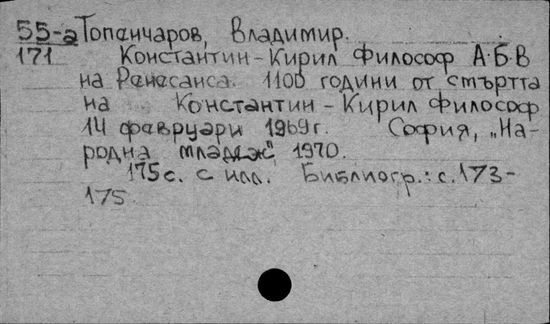 55-а Топенчаров, Владимир.
171 Константин-Кирил Философ А·Б·В
на Ренесанса. 1100 години от смъртта
на Константин - Кирил Философ
14 февруари 1969г. София, „На-
родна младеж", 1970.
175с. с илл. Библиогр.: с.173-
175.